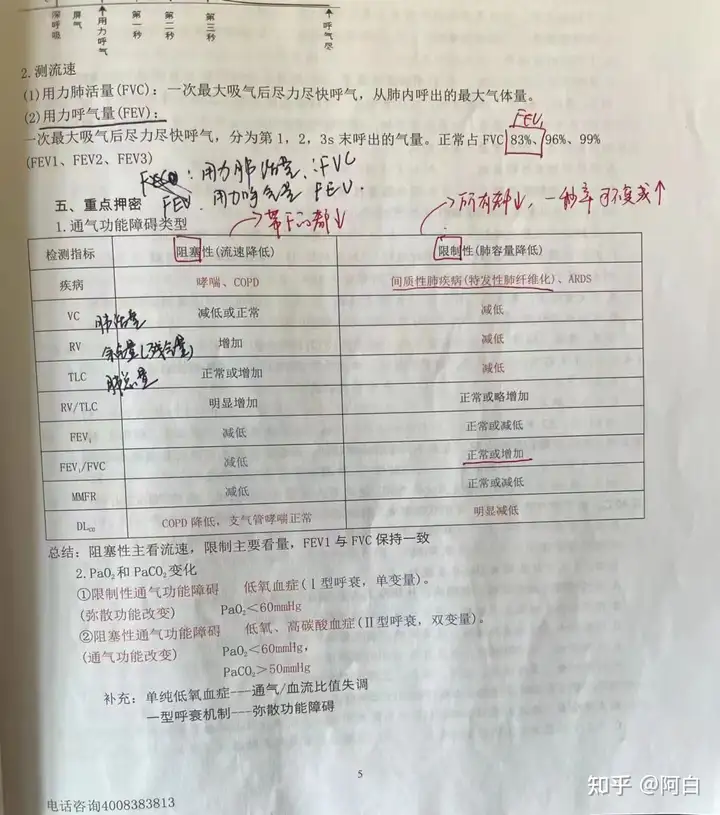 深呼吸 屏气 用力呼气 第一秒 第二秒 第三秒 呼气尽
2.测流速
(1)用力肺活量(FVC)：一次最大吸气后尽力尽快呼气，从肺内呼出的最大气体量。
(2)用力呼气量(FEV)：
FEV₁
一次最大吸气后尽力尽快呼气，分为第 1，2，3s 末呼出的气量。正常占 FVC 83%、96%、99%
(FEV1、FEV2、FEV3)
用力肺活量：FVC
FEV 用力呼气量 FEV.
五、重点押密
带F的都↓
所有都↓，一秒率可不变或↑
1.通气功能障碍类型
检测指标 阻塞性(流速降低) 限制性(肺容量降低)
疾病 哮喘、COPD 间质性肺疾病(特发性肺纤维化)、ARDS
VC 肺活量 减低或正常 减低
RV 余气量(残气量) 增加 减低
TLC 肺总量 正常或增加 减低
RV/TLC 明显增加 正常或略增加
FEV₁ 减低 正常或减低
FEV₁/FVC 减低 正常或增加
MMFR 减低 正常或减低
DLco COPD 降低，支气管哮喘正常 明显减低
总结：阻塞性主看流速，限制主要看量，FEV1 与 FVC 保持一致
2.PaO₂和 PaCO₂变化
①限制性通气功能障碍 低氧血症(Ⅰ型呼衰，单变量)。
(弥散功能改变) PaO₂<60mmHg
②阻塞性通气功能障碍 低氧、高碳酸血症(Ⅱ型呼衰，双变量)。
(通气功能改变) PaO₂<60mmHg，
PaCO₂>50mmHg
补充：单纯低氧血症---通气/血流比值失调
一型呼衰机制---弥散功能障碍
5
电话咨询4008383813
知乎 @阿白